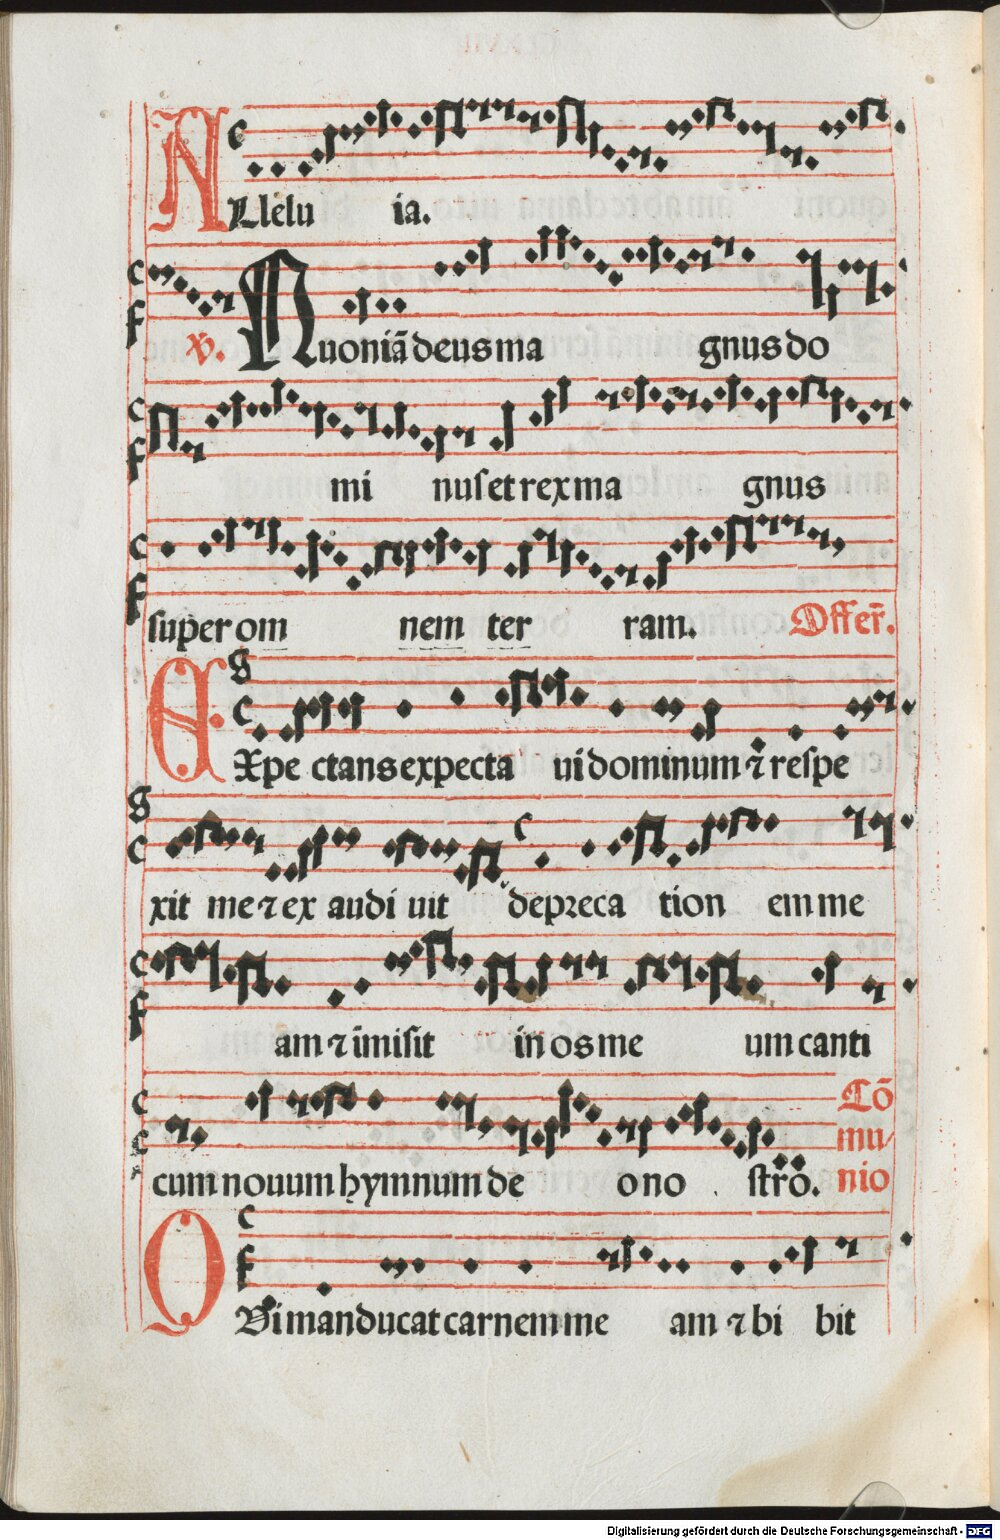 ALlelu ia.
℣. Quoniā deus ma gnus do
mi nus et rex ma gnus
super om nem ter ram. Offer̄.
EXpe ctans expecta ui dominum ⁊ respe
xit me ⁊ ex audi uit depꝛeca tion em me
am ⁊ īmisit in os me um canti
cum nouum hymnum de o no strō. Cō
mu/
nio
QUi manducat carnem me am ⁊ bi bit
Digitalisierung gefördert durch die Deutsche Forschungsgemeinschaft - DFG